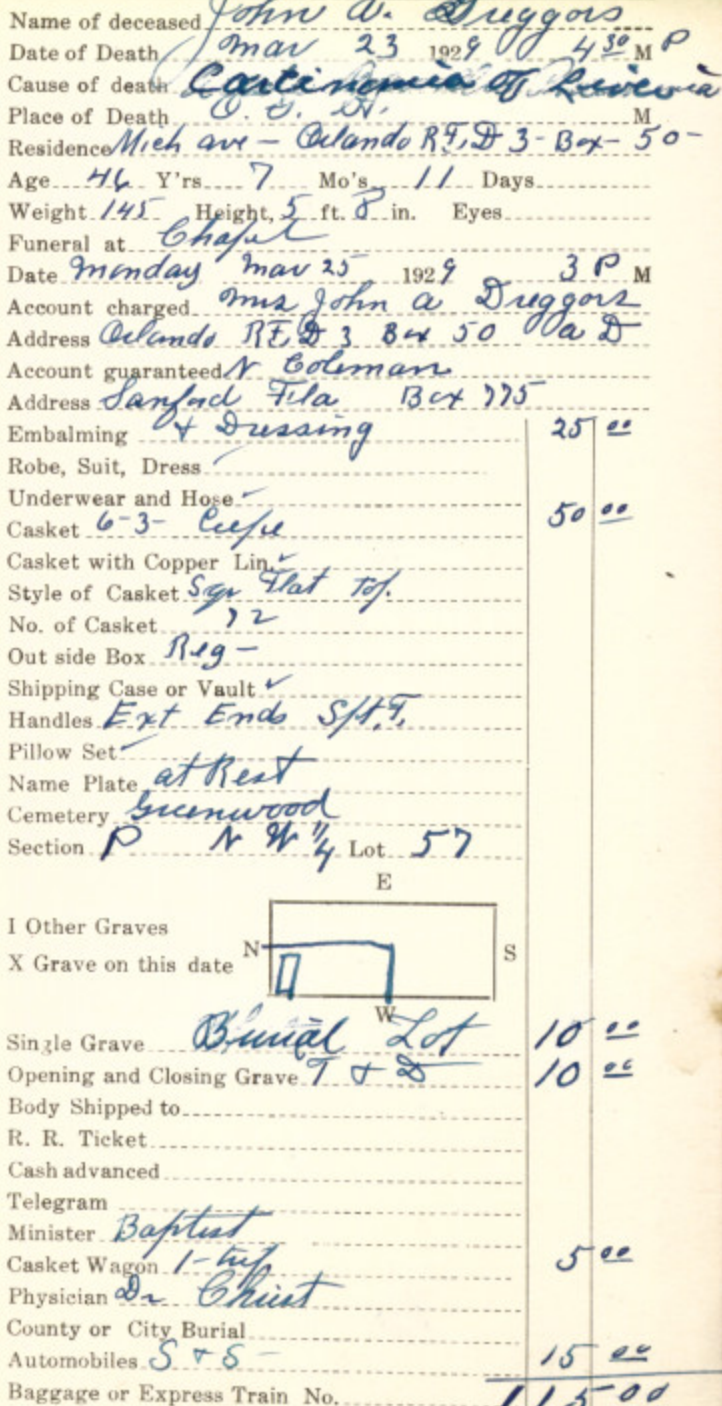 Name of deceased John A. Dreggors
Date of Death Mar 23 1929 4 30 M P
Cause of death Carcinomia of
Place of Death O. G. H. M
Residence Mich ave - Orlando R.F.D 3 - Box - 50 -
Age 46 Y'rs 7 Mo's 11 Days
Weight 145 Height, 5 ft. 8 in. Eyes
Funeral at Chapel
Date Monday Mar 25 1929 3 P M
Account charged Mrs John A Dreggors
Address Orlando RF.D 3 Box 50 a D
Account guaranteed N Coleman
Address Sanford Fla Box 775
Embalming + Dressing 25 00
Robe, Suit, Dress
Underwear and Hose
Casket 6-3- Crepe 50 00
Casket with Copper Lin.
Style of Casket Sqr Flat Top.
No. of Casket 72
Out side Box Reg -
Shipping Case or Vault
Handles Ext Ends
Pillow Set
Name Plate at Rest
Cemetery Greenwood
Section P N W 1/4 Lot 57
E
I Other Graves
N S
X Grave on this date
W
Single Grave Burial Lot 10 00
Opening and Closing Grave T & D 10 00
Body Shipped to
R. R. Ticket
Cash advanced
Telegram
Minister Baptist
Casket Wagon 1-trip 5 00
Physician Dr Christ
County or City Burial
Automobiles S & S - 15 00
Baggage or Express Train No. 115 00